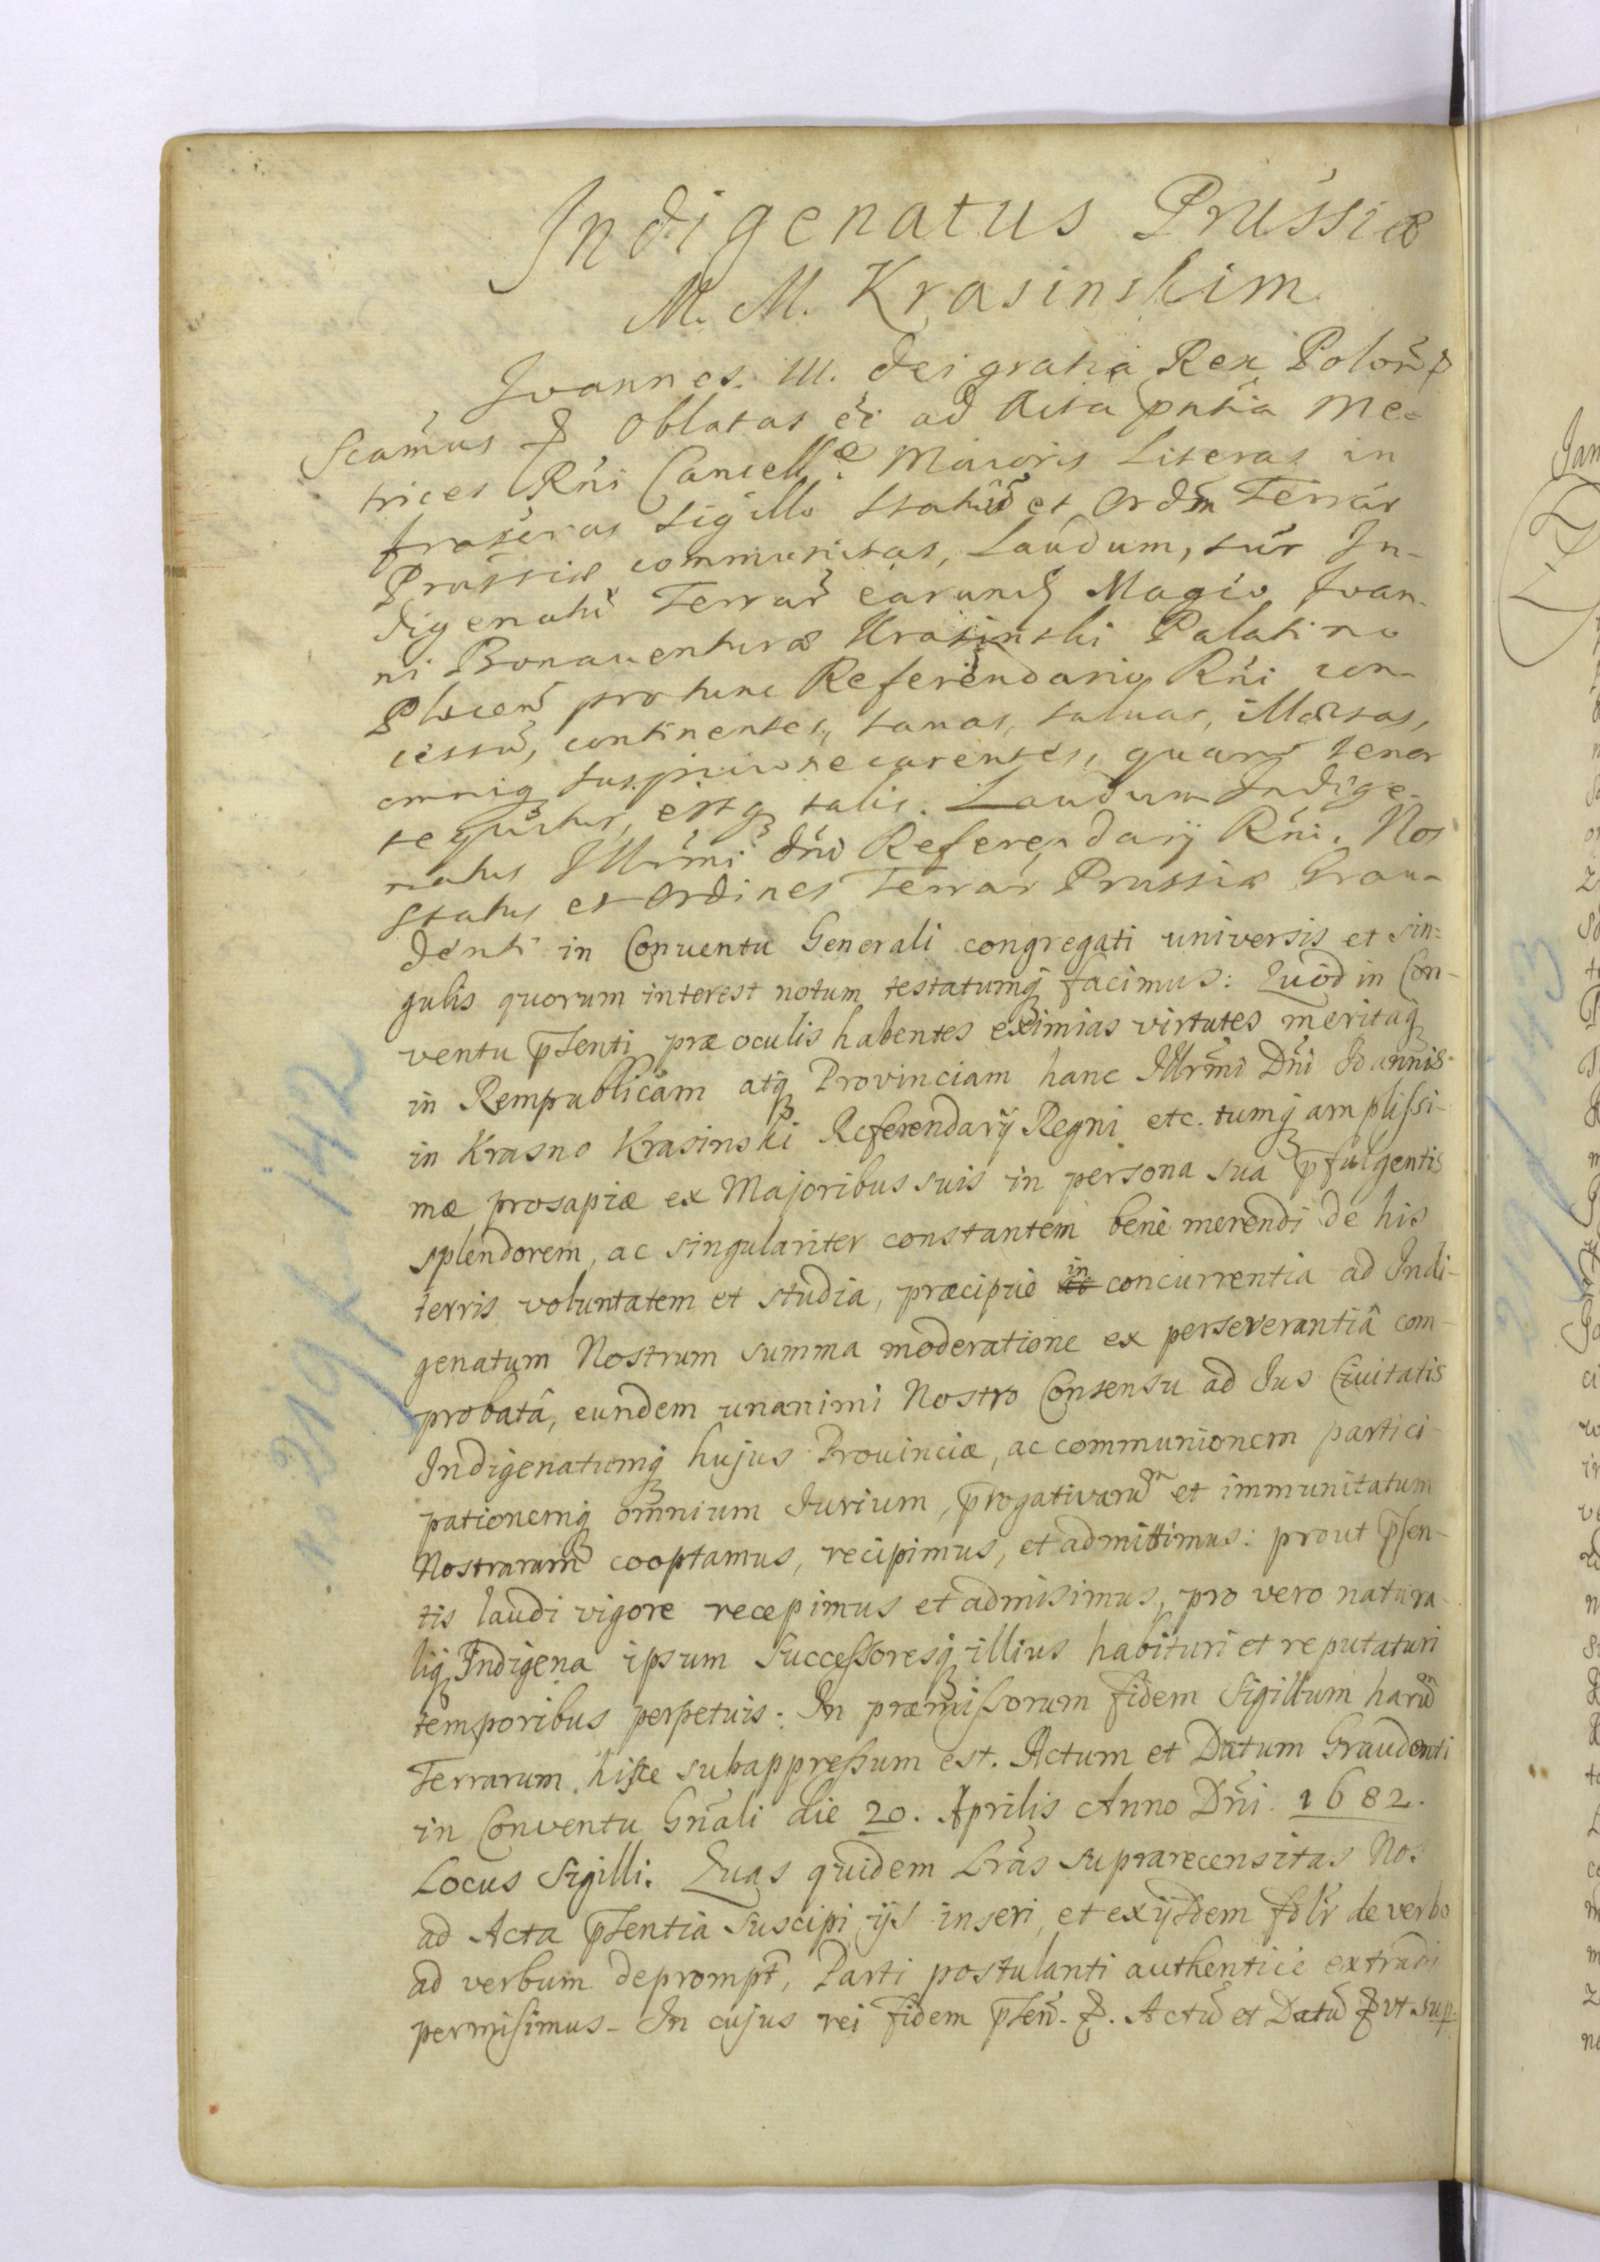 Indigenatus Prussiæ
M. M. Krasinskim
Joannes III. Dei gratia Rex Polon̄
Scamus Oblatas ēē ad Acta pntia Me-
trices Rni Cancell Maioris Literas in
frascras Sigillo Statuū et Ordm Terrar
Prussiæ communitas, Laudum, sur In-
digenatū Terrar earund Magco Joan-
ni Bonauenturæ Krasinski Palatino
Plocen pro tunc Referendario Rni con-
cessū, continentes, sanas, saluas, illæsas,
omniq suspicione carentes, quarū tenor
sequitur, estq talis. Laudum Indige-
natus Illrmi Dni Referendarij Rni. Nos
Status et Ordines Terrar Prussiæ Grau-
denti in Conuentu Generali congregati universis et sin=
gulis quorum interest notum testatumq facimus: Quod in Con-
ventu p̄senti præ oculis habentes eximias virtutes meritaq
in Rempublicam atq Provinciam hanc Illrmi Dni Joannis
in Krasno Krasinski Referendarij Regni etc. tumq amplissi-
mæ prosapiæ ex Majoribus suis in persona sua p̄fulgentis
splendorem, ac singulariter constantem bene merendi de his
terris voluntatem et studia, præcipue in concurrentia ad Indi-
genatum Nostrum summa moderatione ex perseverantiâ com-
probatâ, eundem unanimi Nostro Consensu ad Jus Civitatis
Indigenatumq hujus Prouinciæ, ac communionem partici-
pationemq omnium Jurium, p̄rogativarū et immunitatum
Nostrarum cooptamus, recipimus, et admittimus: prout p̄sen-
tis laudi vigore recepimus et admisimus, pro vero natura-
liq Indigena ipsum Successoresq illius habituri et reputaturi
temporibus perpetuis. In præmissorum fidem Sigillum harū
Terrarum hisce subappressum est. Actum et Datum Graudenti
in Conventu Gn̄ali die 20. Aprilis Anno Dn̄i 1682.
Locus Sigilli. Quas quidem Lrās suprarecensitas Nos
ad Acta p̄sentia suscipi, ijs inseri, et ex ijsdem fdlr de verbo
ad verbum deprompt, Parti postulanti authenticè extradi
permisimus. In cujus rei fidem p̄sen. Actū et Datū ut sup.